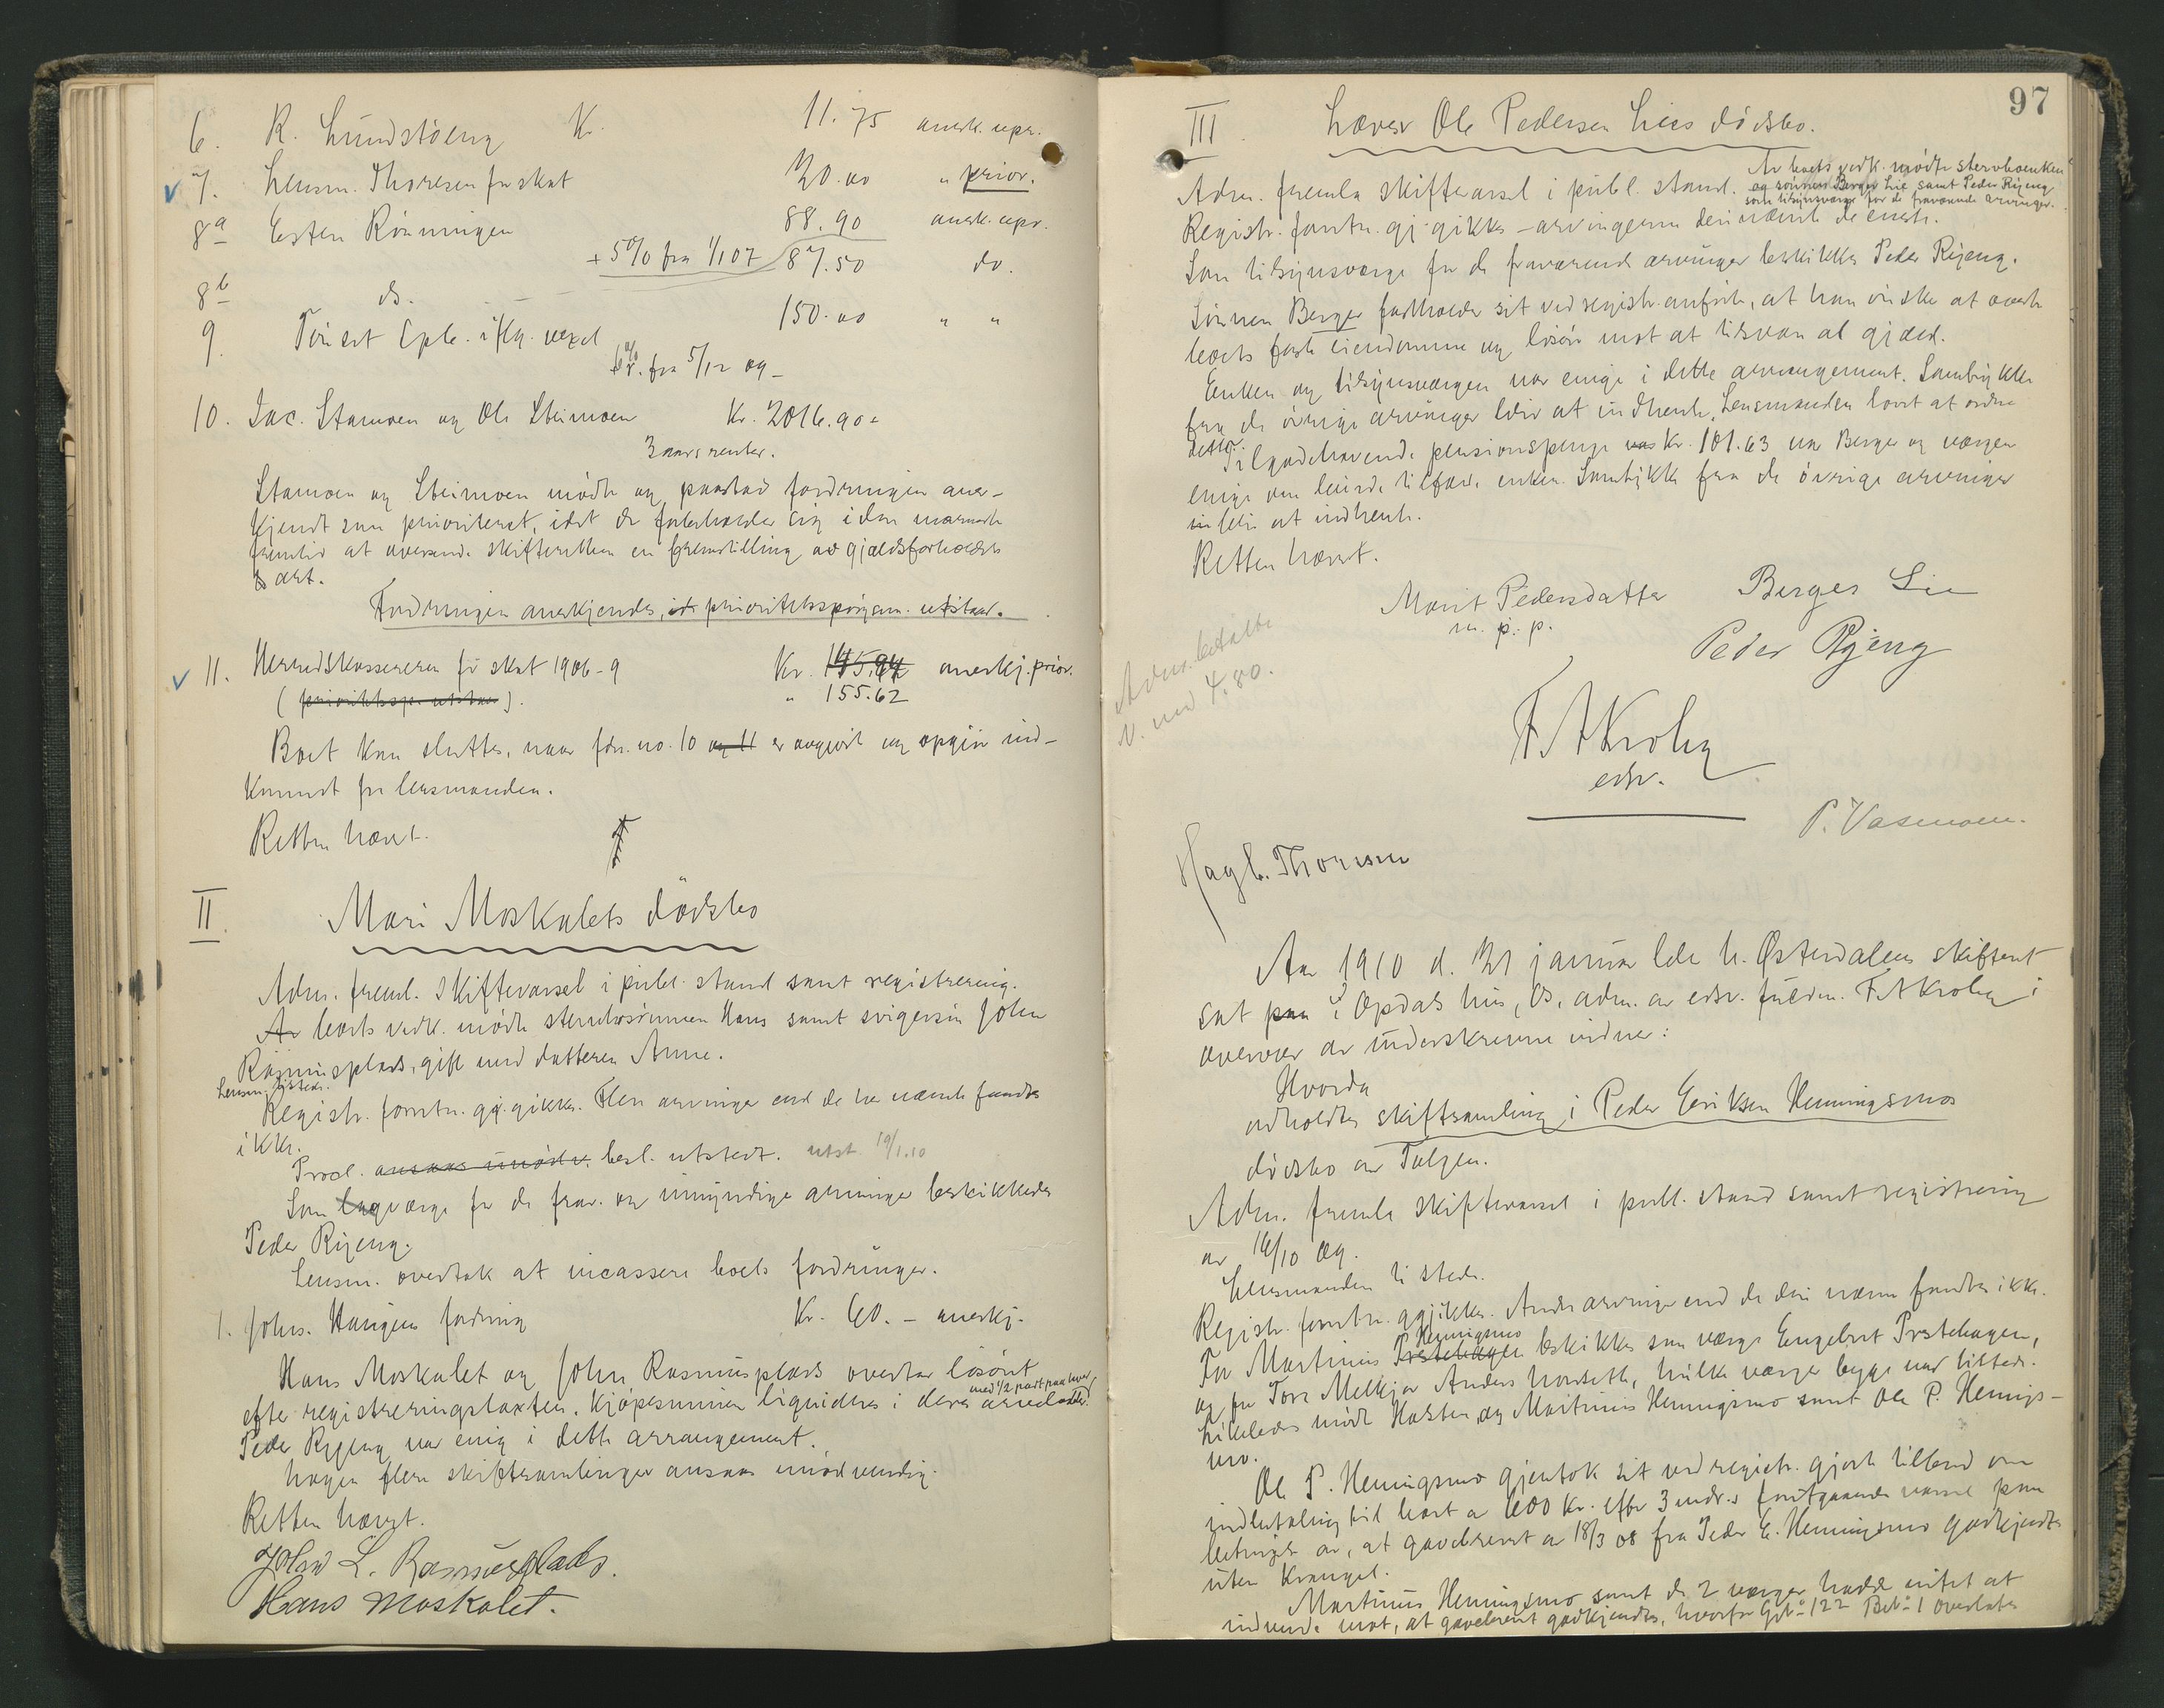 6. R. Lundstöeng Kr. 11.75 anerk. upr.
7. Lensm. Thoresen for skat 20.00 " prior.
8a Esten Rönningen 88.90 anerk. upr.
+ 5% fra 1/1 07 87.50 do.
8b do.
9. Tönset Spb. iflg. vexel 150.00 " "
6% r. fra 5/12 09 –
10. Jac. Stamoen og Ole Steimoen Kr. 2016.90 =
3 aars renter.
Stamoen og Steimoen mödte og paastod fordringen aner-
kjendt som prioritert, idet de forbeholder sig i den nærmeste
fremtid at oversende skifteretten en fremstilling av gjældsforholdets
art.
Fordringen anerkjendes, prioritetsspörsm. utstaar.
11. Herredskassereren for skat 1906-9 Kr. 145.94 anerkj. prior.
(prioritetssp. utstaar). " 155.62
Boet kan sluttes, naar fdr. no. 10 og 11 er avgjort og opgjör ind-
kommet fra lensmanden.
Retten hævet.
II. Mari Moskalets dödsbo
Adm. freml. skiftevarsel i publ. stand samt registrering.
Av boets vedk. mödte stervbosönnen Hans samt svigersön John
Rasmusplads, gift med datteren Anne.
Lensm. tilstede.
Registr. forretn. gj. gikkes. Flere arvinger end de her nævnte fandtes
ikke.
Procl. ansaaes unödv. besl. utstedt. utst. 19/1.10
Som lagværge for de frav. og umyndige arvinger beskikkedes
Peder Ryeng.
Lensm. overtok at incassere boets fordringer.
1. Johs. Haugens fordring Kr. 60. – anerkj.
Hans Moskalet og John Rasmusplads overtar lösöret
med 1/2 part paa hver,
efter registreringstaxten. Kjöpesummen liquideres i deres arvelodder.
Peder Ryeng var enig i dette arrangement.
Nogen flere skiftesamlinger ansaaes unödvendig.
Retten hævet.
John L. Rasmusplads.
Hans Moskalet.
97
III Lærer Ole Pedersen Lies dödsbo.
Av boets vedk. mödte stervboenken
Adm. fremla skiftevarsel i publ. stand. og sönnen Berger Lie samt Peder Ryeng
som tilsynsværge for de fraværende arvinger.
Registr. forretn. gj. gikkes – arvingerne deri nævnt de eneste.
Som tilsynsværge for de fraværende arvinger beskikkes Peder Ryeng.
Sönnen Berger fastholder sit ved registr. anförte, at han önsker at overta
boets faste eiendomme og lösöre mot at tilsvare al gjæld.
Enken og tilsynsværgen var enige i dette arrangement. Samtykke
fra de övrige arvinger blir at indhente, Lensmanden lovet at ordne
dette.
Tilgodehavende pensionspenge var Kr. 101.63 var Berger og værgen
enige om burde tilfalde enken. Samtykke fra de övrige arvinger
blir at indhente.
Retten hævet.
Marit Pedersdatter Berger Lie
m. p. p.
Peder Ryeng
Adm. betalte
v. med 4.80.
F. A Krohg
edsv.
P. Vasmoen.
Hagb. Thoresen
Aar 1910 d. 21 januar blev n. Østerdalens skifteret
sat paa i Opdals hus, Os, adm. av edsv. fuldm. F. A Krohg i
overvær av underskrevne vidner:
Hvorda
avholdtes skiftesamling i Peder Eriksen Henningsmos
dödsbo av Tolgen.
Adm. fremla skiftevarsel i publ. stand samt registrering
av 16/10 09.
Lensmanden tilstede.
Registr. forretn. ggjikkes. Andre arvinger end de deri nævnte fandtes ikke.
Henningsmo
For Martinus Prstehagen beskikkes som værge Engebret Prstehagen,
og for Tore Melkjor Anders hvilke værger begge var tilstede.
Likeledes mödte Halsten og Martinus Henningsmo samt Ole P. Hennings-
mo.
Ole P. Henningsmo gjentok sit ved registr. gjorte tilbud om
indbetaling til boet av 600 Kr. efter 3 mdr.s forutgaaende varsel paa
betingelse av, at gavebrevet av 18/3 08 fra Peder E. Henningsmo godkjendes
uten krangel.
Martinus Henningsmo samt de 2 værger hadde intet at
indvende mot, at gavebrevet godkjendes, hvorfor Grb. 122 Bb. 1 overlates